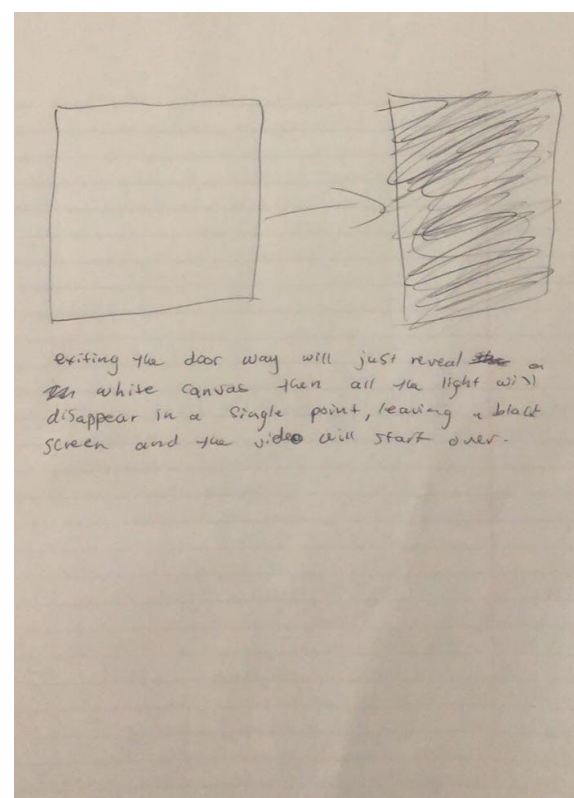 exiting the doorway will just reveal a
white canvas then all the light will
disappear in a single point, leaving a black
screen and the video will start over.